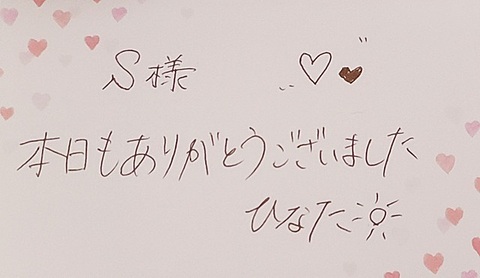 S様
本日もありがとうございました
ひなた